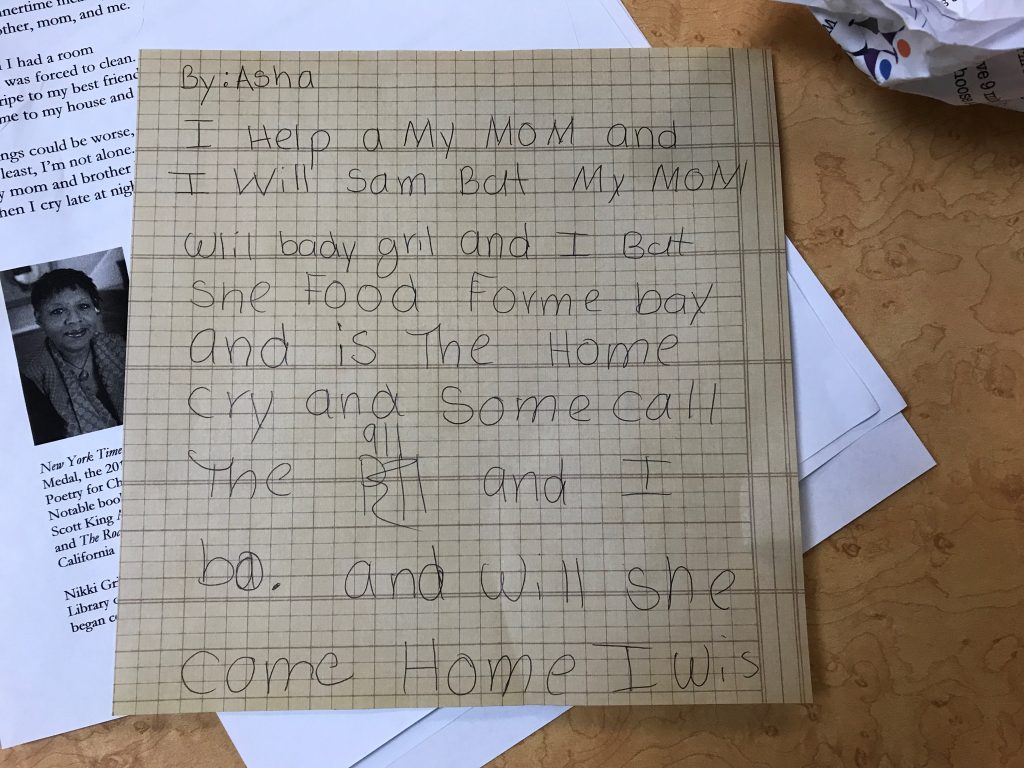 nnertime me
other, mom, and me.
I had a room
was forced to clean.
ripe to my best friend
me to my house and
ngs could be worse,
least, I'm not alone.
y mom and brother
hen I cry late at nigh
New York Time
Medal, the 20
Poetry for Ch
Notable boo
Scott King
and The Ro
California
Nikki Gr
Library
began c
By: Asha
I Help a My MOM and
I Will Sam Batt My MOM
Wlil bady gril and I Batt
She Food Forme bay
and is The Home
Cry and Some call
911
The and I
ba. and Will she
Come Home I wis